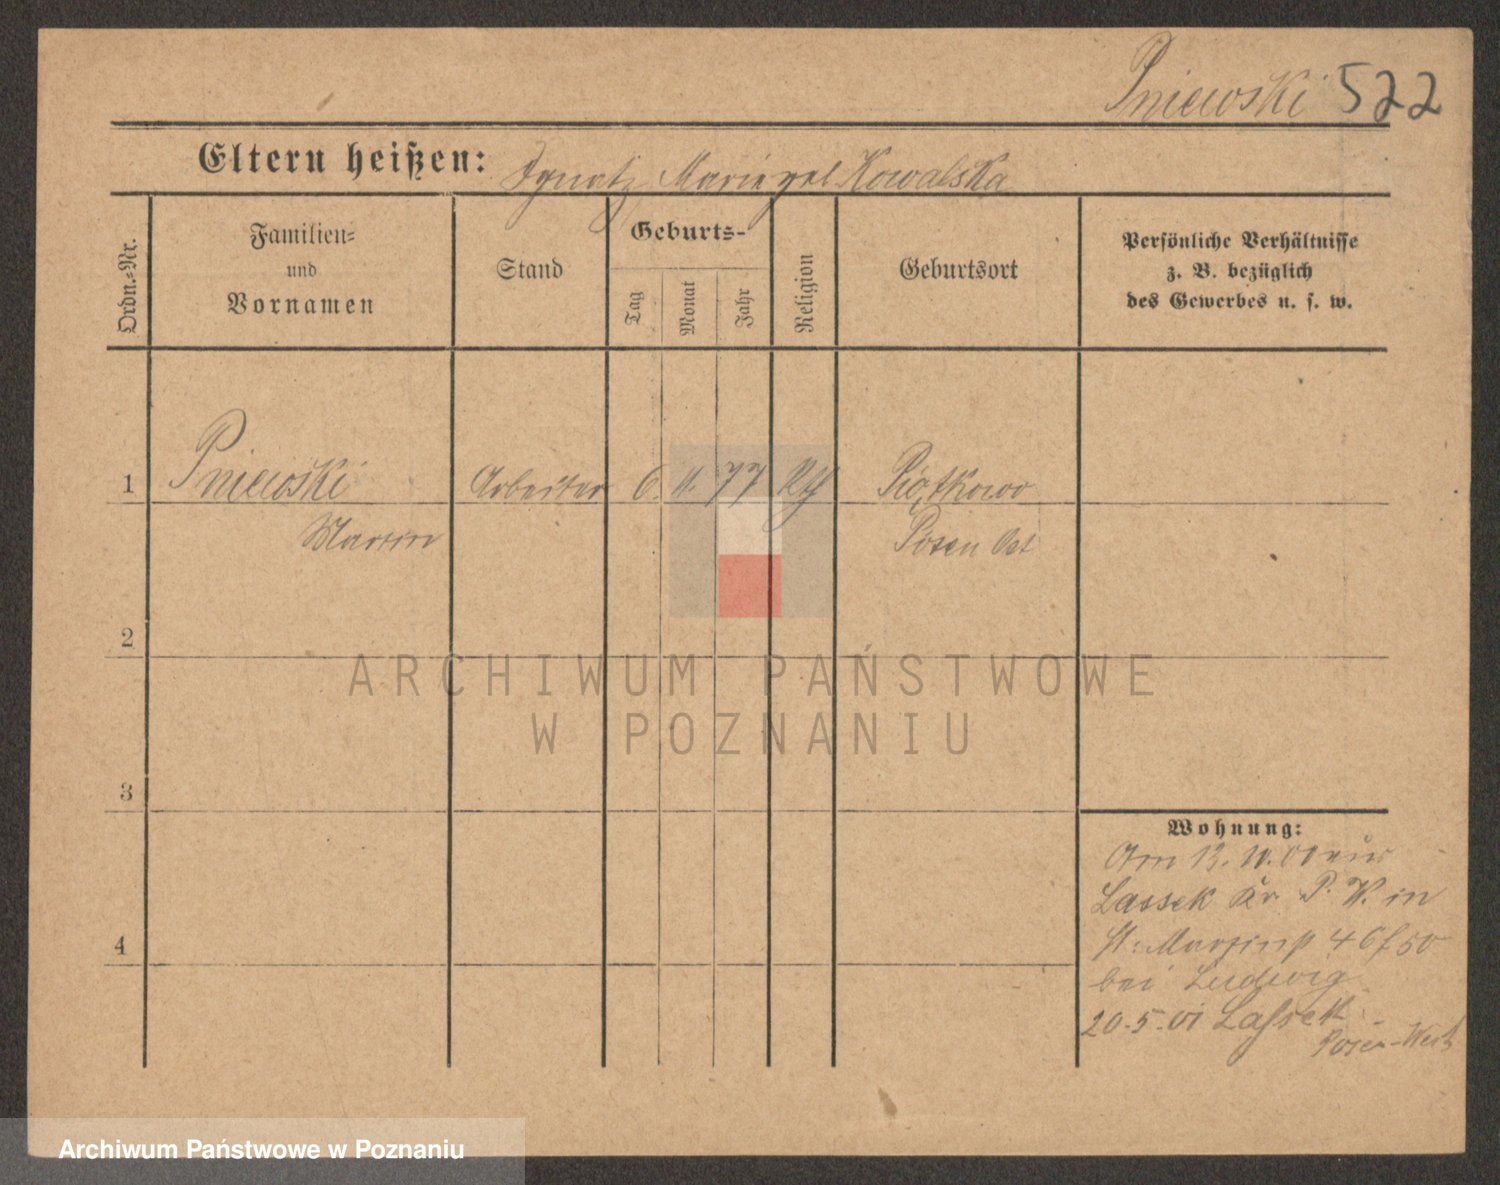 Pniewski 522
Eltern heißen: Ignatz Marie gel Kowalska
Ordn.=Nr.
Familien=
und
Vornamen
Stand
Geburts-
Tag
Monat
Jahr
Religion
Geburtsort
Persönliche Verhältnisse
z. B. bezüglich
des Gewerbes u. s. w.
1 Pniewski Arbeiter 6. 11. 77 Piątkowo
Martin Posen Ost
2
3
4
Wohnung:
Am 13. 11. 00 aus
Lassek Kr P. W. in
St. Martin 46/50
bei Ludwig
20.5.01 Lassek
Posen-West
ARCHIWUM PAŃSTWOWE
W POZNANIU
Archiwum Państwowe w Poznaniu